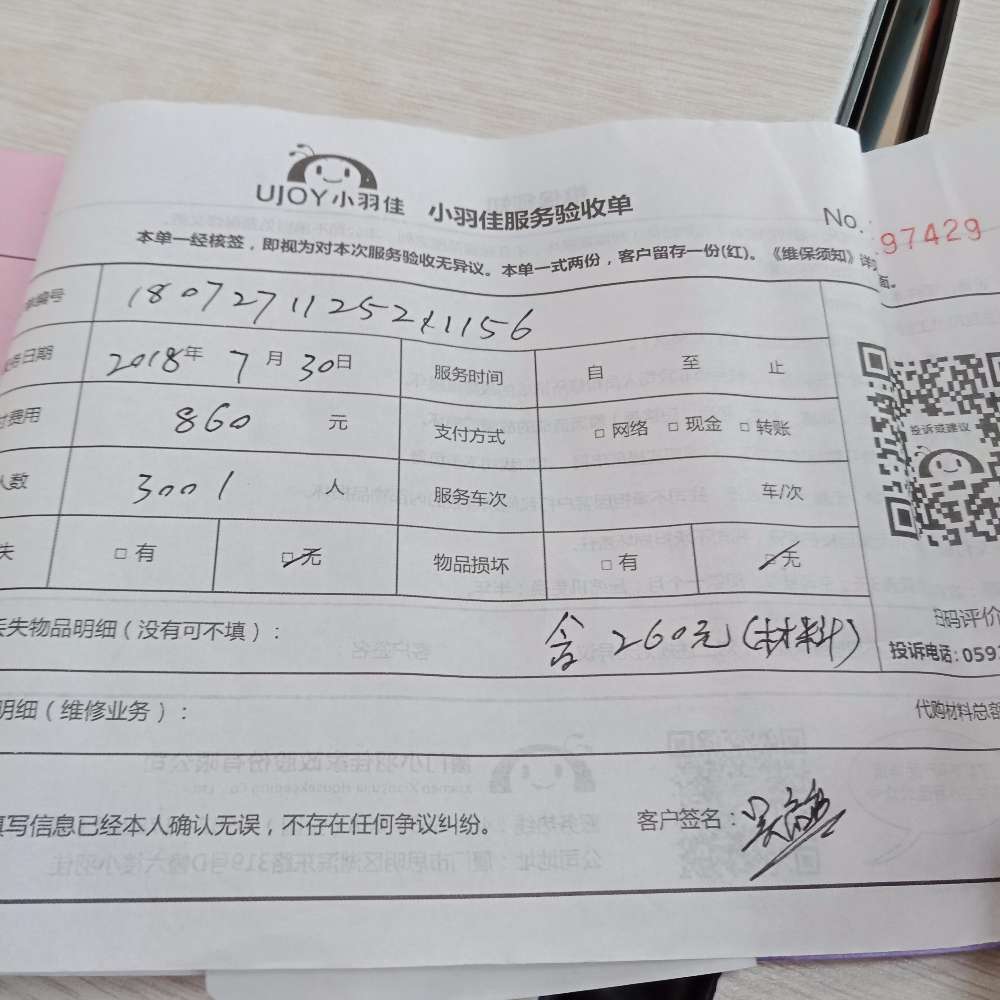 UJOY小羽佳 小羽佳服务验收单 No. 97429
本单一经核签，即视为对本次服务验收无异议。本单一式两份，客户留存一份(红)。《维保须知》详
面。
编号 180727112521156
务日期 2018年 7 月 30日 服务时间 自 至 止
付费用 860 元 支付方式 □ 网络 □ 现金 □ 转账
人数 3001 人 服务车次 车/次
失 □ 有 □ 无 物品损坏 □ 有 □ 无
投诉或建议
丢失物品明细（没有可不填）： 含 260元(材料)
扫码评价
投诉电话：059
明细（维修业务）： 代购材料总
填写信息已经本人确认无误，不存在任何争议纠纷。 客户签名：